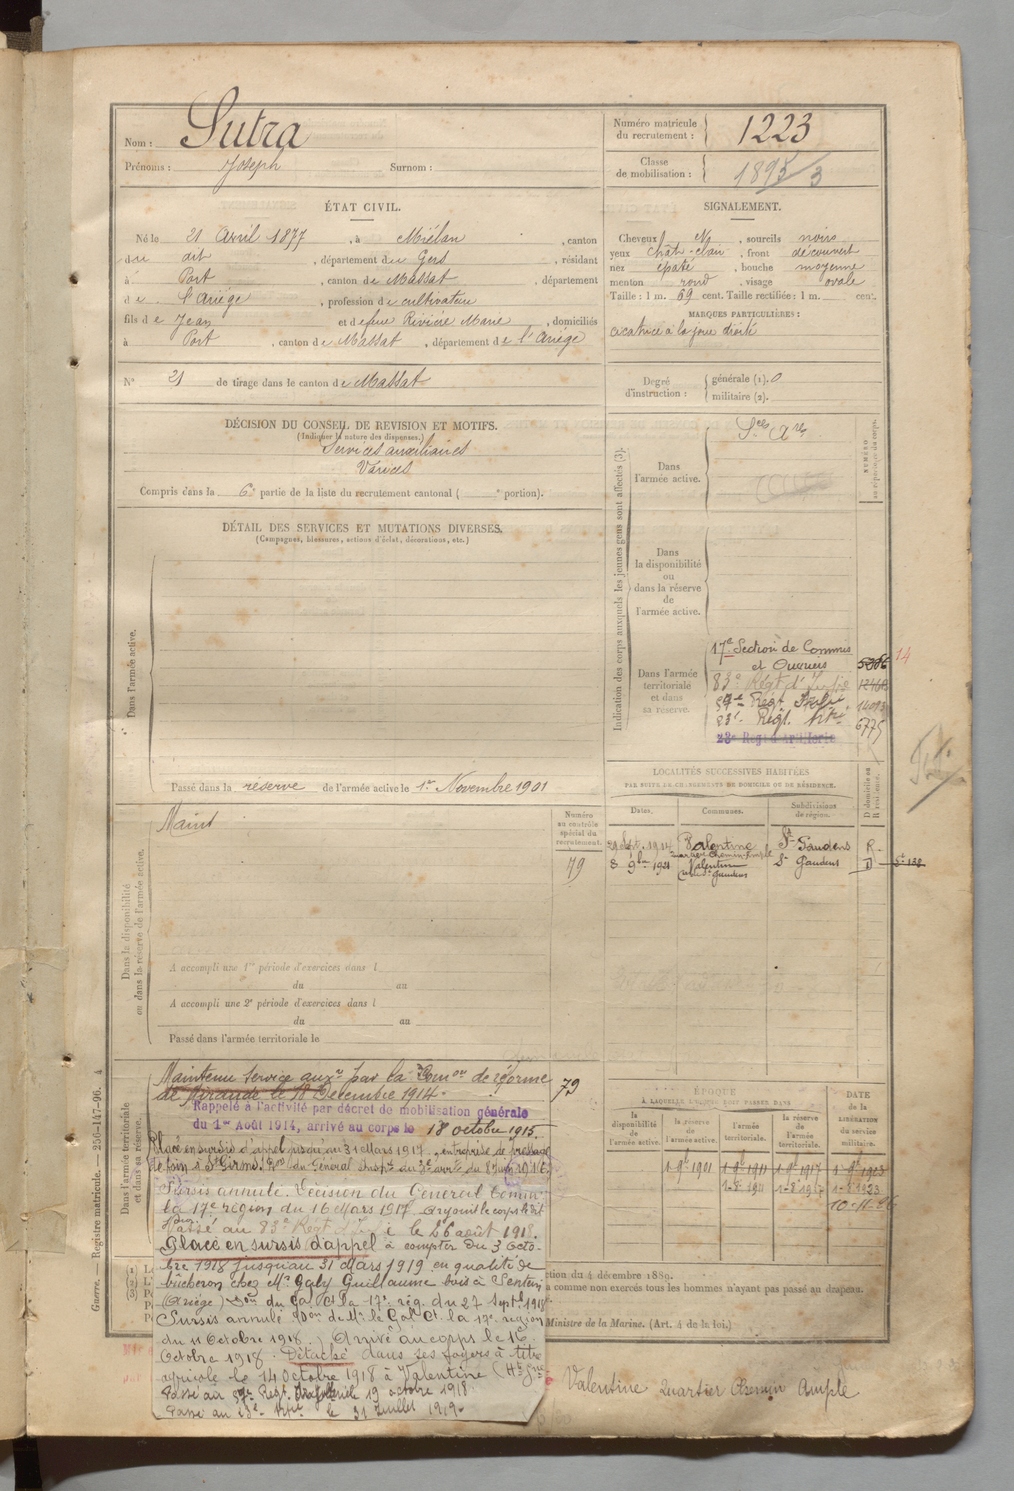 Nom : Sutra
Prénoms : Joseph Surnom :
Numéro matricule du recrutement : 1223
Classe de mobilisation : 1893
ÉTAT CIVIL.
Né le 21 Avril 1877, à Miélan, canton
du dit, département du Gers, résidant
à Port, canton de Massat, département
de l'Ariège, profession de cultivateur
fils de Jean et de feue Rivière Marie, domiciliés
à Port, canton de Massat, département de l'Ariège
N° 21 de tirage dans le canton de Massat
SIGNALEMENT.
Cheveux N, sourcils noirs
yeux chât-clair, front découvert
nez épaté, bouche moyenne
menton rond, visage ovale
Taille : 1 m. 69 cent. Taille rectifiée : 1 m. cent.
MARQUES PARTICULIÈRES :
cicatrice à la joue droite
Degré d'instruction : générale (1). 0
militaire (2).
DÉCISION DU CONSEIL DE REVISION ET MOTIFS.
(Indiquer la nature des dispenses.)
Services auxiliaires
Varices
Compris dans la 6e partie de la liste du recrutement cantonal ( e portion).
DÉTAIL DES SERVICES ET MUTATIONS DIVERSES.
(Campagnes, blessures, actions d'éclat, décorations, etc.)
Dans l'armée active.
Passé dans la réserve de l'armée active le 1er Novembre 1901
Indication des corps auxquels les jeunes gens sont affectés (3).
NUMÉRO
Dans l'armée active.
Dans la disponibilité ou dans la réserve de l'armée active.
Dans l'armée territoriale et dans sa réserve.
17e Section de Commis
et Ouvriers
14
83e Régt d'
14013
83e Régt Artie
6775
28e Reg d'Artillerie
LOCALITÉS SUCCESSIVES HABITÉES
PAR SUITE DE CHANGEMENTS DE DOMICILE OU DE RÉSIDENCE.
Dates. Communes. Subdivisions de région.
29 Sept. 1914 Valentine St Gaudens R
8 9bre 1921 Valentine St Gaudens D
Dans la disponibilité ou dans la réserve de l'armée active.
Maint
Numéro au contrôle spécial du recrutement.
79
A accompli une 1re période d'exercices dans l
du au
A accompli une 2e période d'exercices dans l
du au
Passé dans l'armée territoriale le
Dans l'armée territoriale et dans sa réserve.
Maintenu service auxre par la Comon de réforme
de Mirande le 18 Décembre 1914.
79
Rappelé à l'activité par décret de mobilisation générale
du 1er Août 1914, arrivé au corps le 18 octobre 1915.
Placé en sursis d'appel jusqu'au 31 Mars 1917, entreprise de pressage
de foin à St Girons. du Général
Sursis annulé. Décision du Général Commt
la 17e région du 16 Mars 1917
Passé au 83e Régt le 26 août 1918.
Placé en sursis d'appel à compter du 3 Octo-
bre 1918 jusqu'au 31 Mars 1919 en qualité de
bûcheron chez Mr Galy Guillaume bois à Sentein
(Ariège) Don du Gal Ct la 17e rég. du 27 Septe 1918
Sursis annulé Don de Mr le Gal Ct la 17e région
du 11 Octobre 1918. Arrivé au corps le 16
Octobre 1918. Détaché dans ses foyers à titre
agricole le 14 Octobre 1918 à Valentine (Hte Gne
Passé au 57e Régt d'Artillerie le 19 octobre 1918.
Passé au 23e Artie le 31 Juillet 1919.
ÉPOQUE
À LAQUELLE L'HOMME DOIT PASSER DANS
la disponibilité de l'armée active.
la réserve de l'armée active.
l'armée territoriale.
la réserve de l'armée territoriale.
DATE de la LIBÉRATION du service militaire.
1 9bre 1901 1 9bre 1911 1 9bre 1917 1 9bre 1923
1-8 1911 1-8 1917 1-8 1923
10-11-26
ction du 4 décembre 1889.
a comme non exercés tous les hommes n'ayant pas passé au drapeau.
Ministre de la Marine. (Art. 4 de la loi.)
Guerre. — Registre matricule. — 256-147-96. 4
Valentine Quartier Chemin Ample